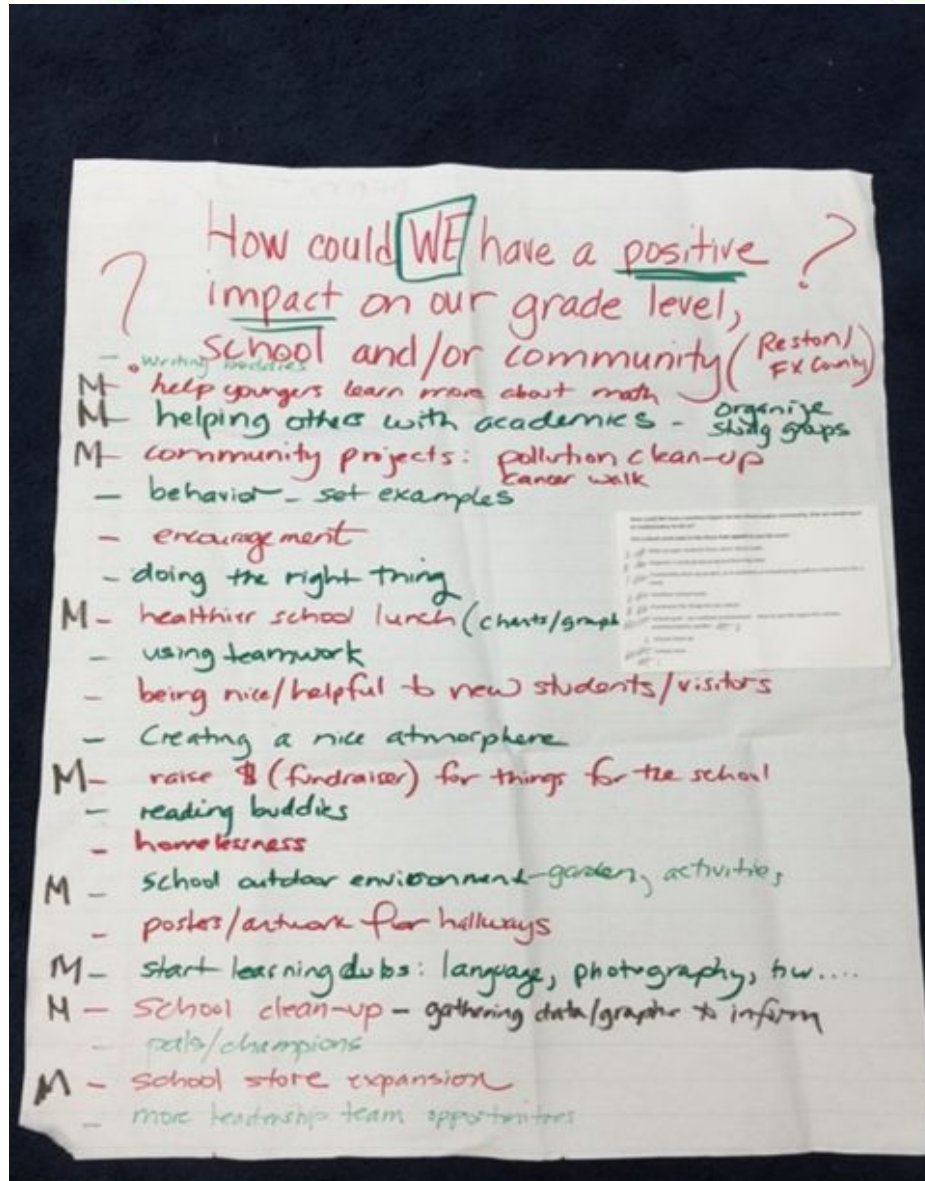 How could WE have a positive ?
? impact on our grade level,
school and/or community (Reston/
FX County)
- writing buddies
M- help youngers learn more about math
M- helping others with academics - organize
study groups
M- community projects: pollution clean-up
cancer walk
- behavior - set examples
- encouragement
- doing the right thing
M- healthier school lunch (charts/graph
- using teamwork
- being nice/helpful to new students/visitors
- Creating a nice atmorphere
M- raise $ (fundraiser) for things for the school
- reading buddies
- homelessness
M- school outdoor environment - garden, activities
- posters/artwork for hallways
M- start learning clubs: language, photography, hw....
M- School clean-up - gathering data/graphs to inform
- pals/champions
M- school store expansion
- more leadership team opportunities